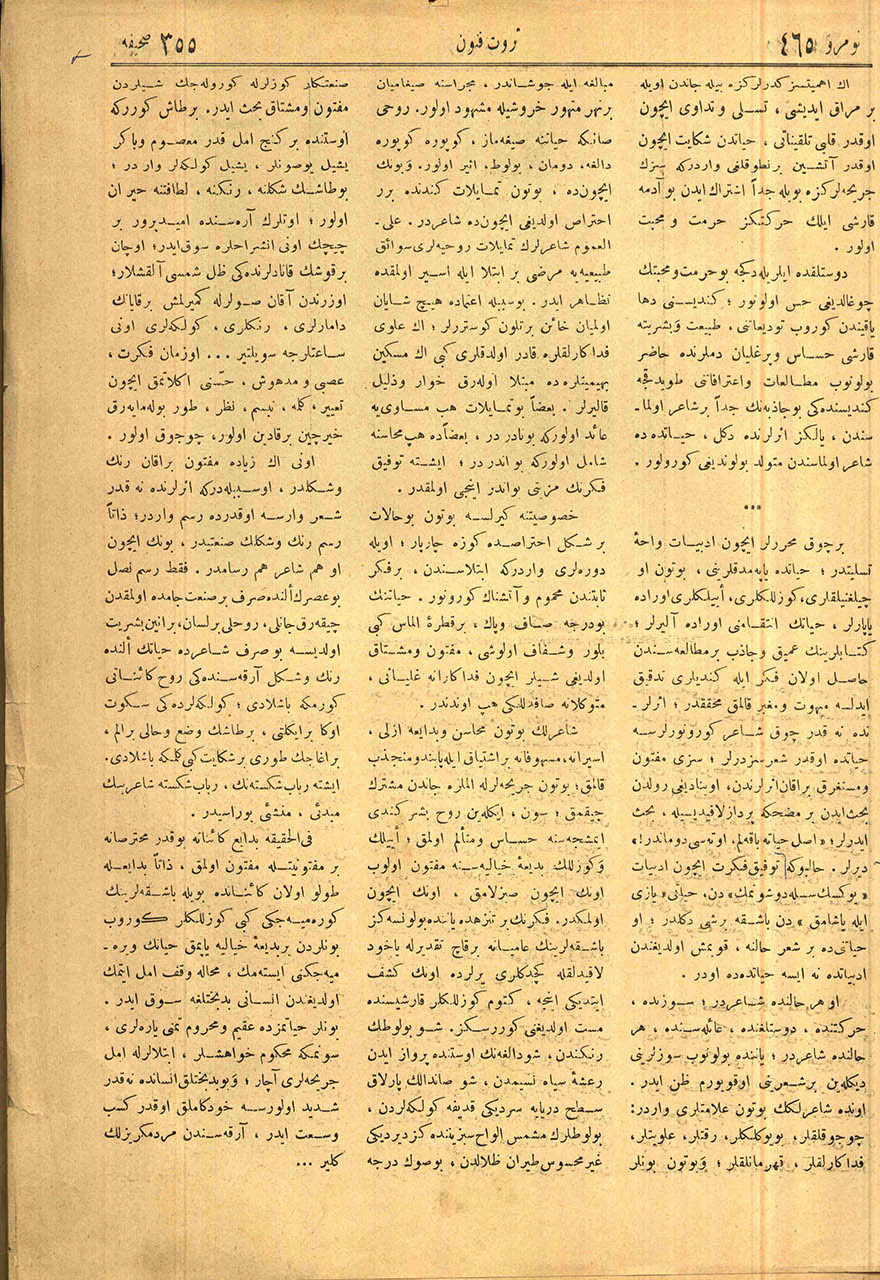 نومرو ٤٦٥
ثروت فنون
٣٥٥ صحیفه
اك اهمیتسز كدرلركزه بیله جاندن اویله
بر مراق ایدیشی ، تسلی و تداوی ایچون
اوقدر قلبی تلقیناتی ، حیاتدن شكایت ایچون
اوقدر آتشین برنطوقلغی واردركه سزك
جریحه لركزه بویله جداً اشتراك ایدن بو آدمه
قارشی ایلك حركتكز حرمت و محبت
اولور .
دوستلقده ایلریله دكجه بو حرمت و محبتك
چوغالدیغی حس اولونور ؛ كندیسنی دها
یاقیندن كوروب تودیعاتی ، طبیعت و بشریته
قارشی حساس و پرغلیان دملرنده حاضر
بولونوب مطالعات و اعترافاتی طویدقجه
كندیسنده كی بو جاذبه نك جداً بر شاعر اولما-
سندن ، یالكز اثرلرنده دكل ، حیاتده ده
شاعر اولماسندن متولد بولوندیغی كورولور .
***
برچوق محررلر ایچون ادبیات واحهٔ
تسلیتدر ؛ حیاتده یاپه مدقلرینی ، بوتون او
چیلغینلقلری ، كوزللكلری ، أییلكلری اوراده
یاپارلر ، حیاتك انتقامنی اوراده آلیرلر ؛
كتابلرینك عمیق و جاذب بر مطالعه سندن
حاصل اولان فكر ایله كندیلری تدقیق
ایدلسه مبهوت و مغبر قالمق محققدر ؛ اثرلر-
نده نه قدر چوق شاعر كورونورلرسه
حیاتده اوقدر شعرسزدرلر ؛ سزی مفتون
و مستغرق براقان اثرلرندن ، اوینادیغی رولدن
بحث ایدن بر مضحكه پرداز لاقیدیسیله ، بحث
ایدرلر ؛ «اصل حیاته باقه لم ، اوته سی دوماندر!»
دیرلر . حالبوكه توفیق فكرت ایچون ادبیات
«یوكسك سسله دوشونمك» دن ، حیاتی «یازی
ایله یاشامق» دن باشقه برشی دكلدر ؛ او
حیاتی ده بر شعر حالنه ، قویمش اولدیغندن
ادبیاتده نه ایسه حیاتده ده اودر .
او هر حالنده شاعردر ؛ سوزنده ،
حركتنده ، دوستلغنده ، عائله سنده ، هر
حالنده شاعردر ؛ یاننده بولونوب سوزلرینی
دیكله ین برشعرینی اوقویورم ظن ایدر .
اونده شاعرلكك بوتون علامتلری واردر :
چوجوقلقلر ، بویوكلكلر ، رقتلر ، علویتلر ،
فداكارلقلر ، قهرمانلقلر ؛ و بوتون بونلر
مبالغه ایله جوشاندر ، مجراسنه صیغامیان
بر نهر متهور خروشیله مشهود اولور . روحی
صانكه حیاتنه صیغه ماز ، كوپوره كوپوره
دالغه ، دومان ، بولوط ، اثیر اولور . و بونك
ایچون ده ، بوتون تمایلات كندنده برر
احتراص اولدیغی ایچون ده شاعردر . علی-
العموم شاعرلرك تمایلات روحیه لری سوائق
طبیعیه یه مرضی بر ابتلا ایله اسیر اولمقده
تظاهر ایدر . بوسببله اعتماده هیچ شایان
اولمیان خائن بر تلون كوستررلر ؛ اك علوی
فداكارلقلره قادر اولدقلری كبی اك مسكین
بهیمیتلره ده مبتلا اوله رق خوار و ذلیل
قالیرلر . بعضاً بو تمایلات هپ مساوی یه
عائد اولوركه بو نادر در ، بعضاً ده هپ محاسنه
شامل اولوركه بو اندر در ؛ ایشته توفیق
فكرتك مزیتی بو اندر اینجی اولمقدر .
خصوصیتنه كیرلسه بوتون بو حالات
بر شكل احتراصده كوزه چارپار ؛ اویله
دوره لری واردركه ابتلاسندن ، برفكر
ثابتندن محموم و آتشناك كورونور . حیاتنك
بودرجه صاف و پاك ، بر قطرهٔ الماس كبی
بلور و شفاف اولوشی ، مفتون و مشتاق
اولدیغی شیلر ایچون فداكارانه غلیانی ،
متوكلانه صافدللكی هپ اوندندر .
شاعرلك بوتون محاسن و بدایعه ازلی ،
اسیرانه ، مسبهوتانه بر اشتیاق ایله پابند و منجذب
قالمق ؛ بوتون جریحه لرله الملره جاندن مشترك
چیقمق ؛ سون ، ایكله ین روح بشر كندی
ایمشجه سنه حساس و متألم اولمق ؛ أییلك
و كوزللك بدیعهٔ خیالیه سنه مفتون اولوب
اونك ایچون صیزلامق ، اونك ایچون
اولمكدر . فكرتك بر تنزهده یاننده بولونسه كز
باشقه لرینك عامیانه بر قاچ تقدیر له یاخود
لاقیدلقله كچدكلری یرلرده اونك كشف
ایتدیكی اینجه ، كتوم كوزللكلر قارشیسنده
مست اولدیغی كوررسكز . شو بولوطك
رنكندن ، شو دالغه نك اوستنده پرواز ایدن
رعشهٔ سیاه نسیمدن ، شو صاندالك پارلاق
سطح دریایه سردیكی قدیفه كولكه لردن ،
بولوطلرك مشمس الواح سبزیننده كزدیردیكی
غیر محسوس طیران ظلالدن ، بوصوك درجه
صنعتكار كوزلرله كوروله جك شیلردن
مفتون و مشتاق بحث ایدر . بر طاش كورركه
اوستنده بر كنج امل قدر معصوم و باكر
یشیل یوصونلر ، یشیل كولكه لر واردر ؛
بو طاشك شكلنه ، رنكنه ، لطافتنه حیران
اولور ؛ اوتلرك آره سنده امیدپرور بر
چیچك اونی انشراحلره سوق ایدر ؛ اوچان
برقوشك قانادلرنده كی ظل شمسی آلقشلار ؛
اوزرندن آقان صولرله كمیرلمش برقایانك
دامارلری ، رنكلری ، كولكه لری اونی
ساعتلرجه سویلتیر ... اوزمان فكرت ،
عصبی و مدهوش ، حسنی اكلاتمق ایچون
تعبیر ، كلمه ، تبسم ، نظر ، طور بوله مایه رق
خیرچین بر قادین اولور ، چوجوق اولور .
اونی اك زیاده مفتون براقان رنك
و شكلدر ، او سببله دركه اثرلرنده نه قدر
شعر وارسه اوقدرده رسم واردر ؛ ذاتاً
رسم رنك و شكلك صنعتیدر ، بونك ایچون
او هم شاعر هم رسامدر . فقط رسم نصل
بو عصرك ألنده صرف برصنعت جامده اولمقدن
چیقه رق جانلی ، روحلی بر لسان ، بر انین بشریت
اولدیسه بو صرف شاعرده حیاتك ألنده
رنك و شكل آرقه سنده كی روح كائناتی
كورمكه باشلادی ؛ كولكه لرده كی سكوت
اوكا بر ایكلتی ، بر طاشك وضع و حالی بر الم ،
براغاجك طوری بر شكایت كبی كلمكه باشلادی .
ایشته رباب شكسته نك ، رباب شكسته شاعرینك
مبدئی ، منشئی بوراسیدر .
فی الحقیقه بدایع كائناته بوقدر محترصانه
بر مفتونیتله مفتون اولمق ، ذاتاً بدایعله
طولو اولان كائناتده بویله باشقه لرینك
كوره میه جكی كبی كوزللكلر كوروب
بونلردن بر بدیعهٔ خیالیه یاپمق حیاتك ویره-
میه جكنی ایسته مك ، محاله وقف امل ایتمك
اولدیغندن انسانی بدبختلغه سوق ایدر .
بونلر حیاتمزده عقیم و محروم تمنی یاره لری ،
سونمكه محكوم خواهشلر ، ابتلالرله امل
جریحه لری آچار ؛ و بو بدبختلق انسانده نه قدر
شدید اولورسه خودكاملق اوقدر كسب
وسعت ایدر ، آرقه سندن مردمكریزلك
كلیر ...